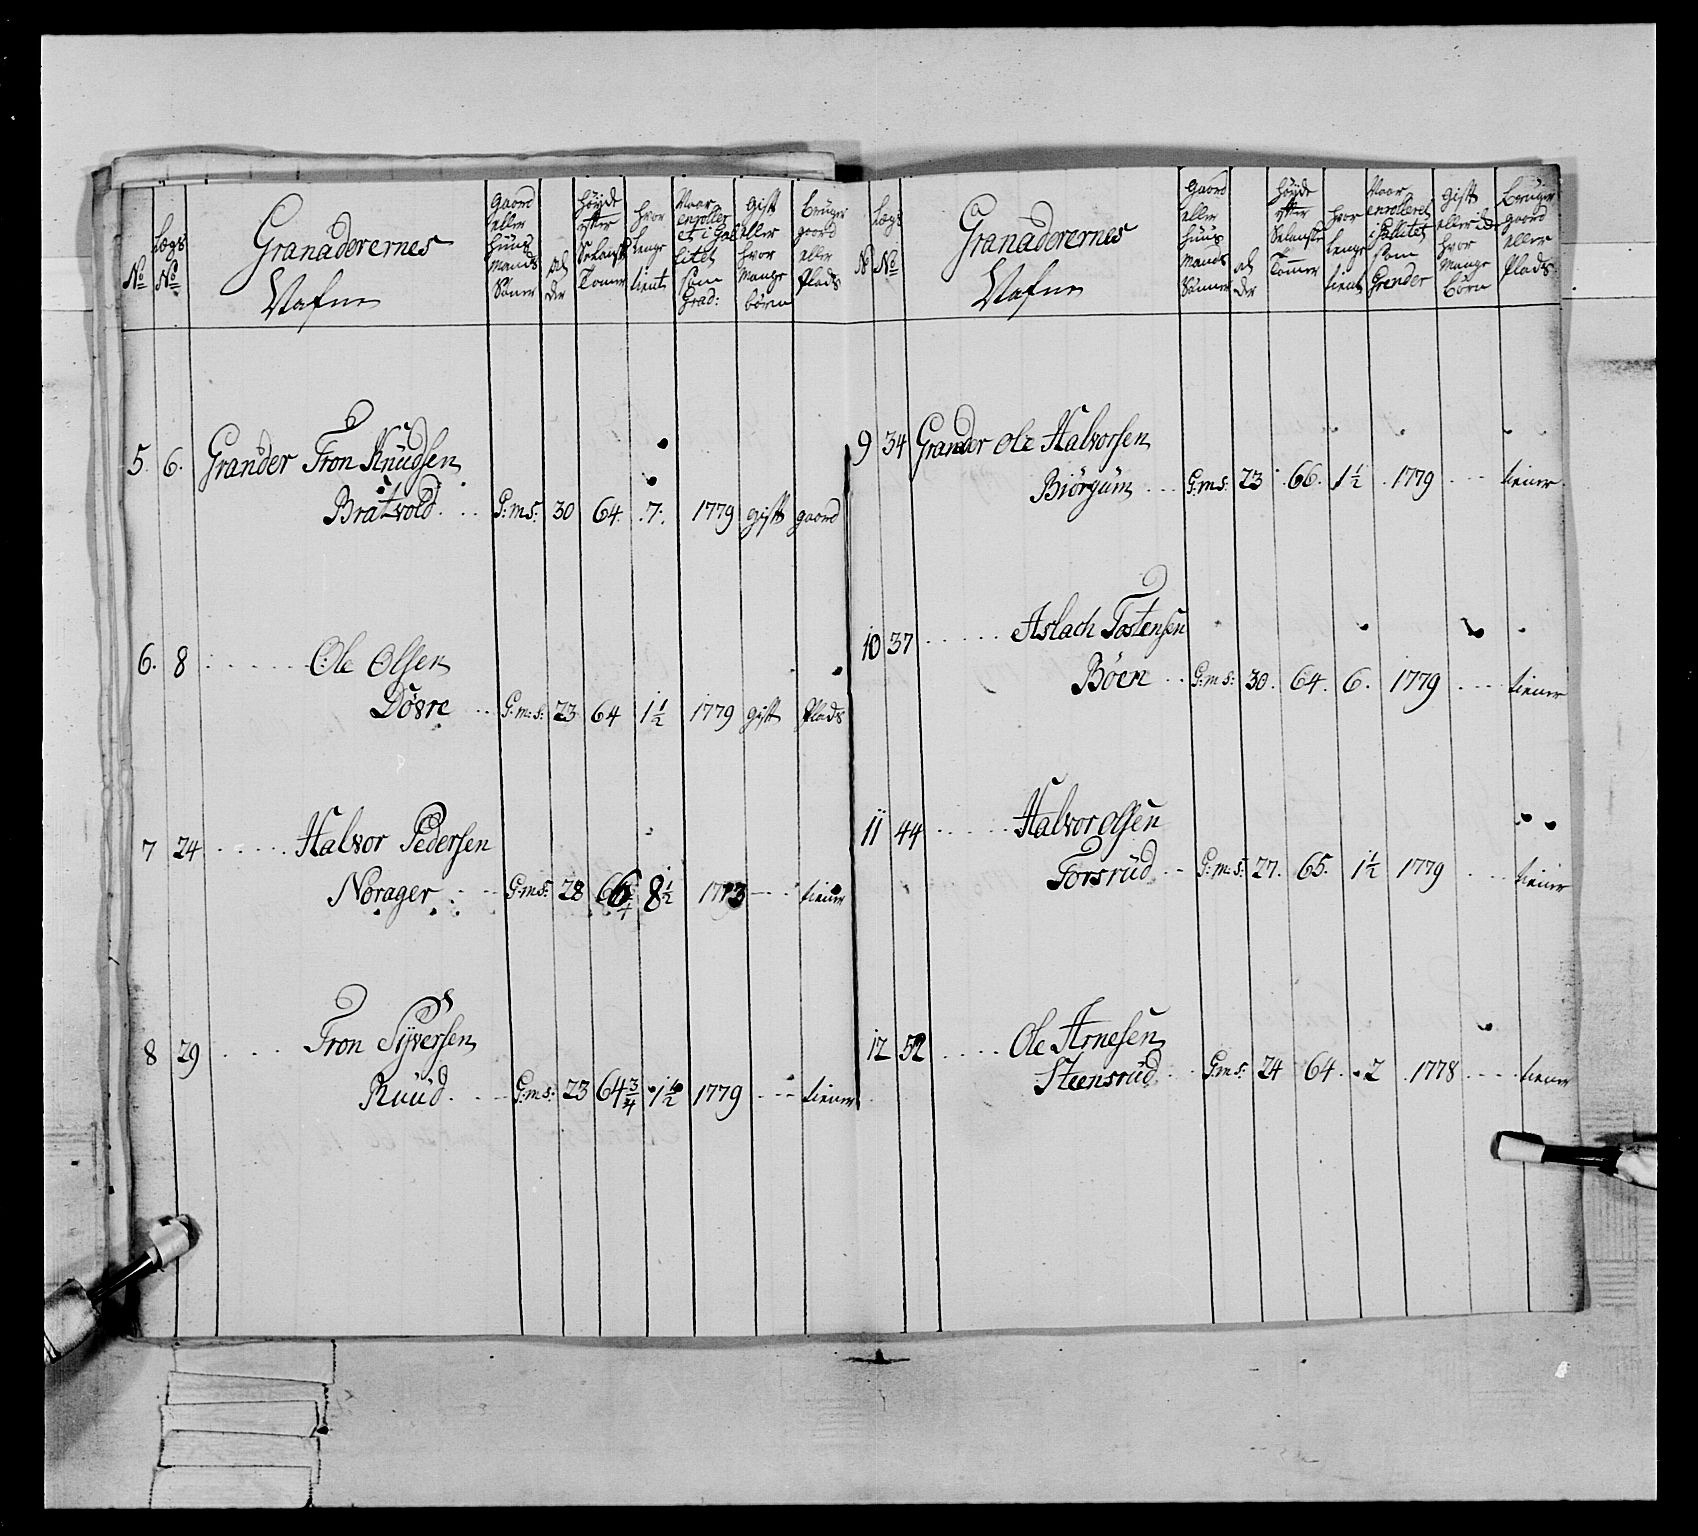 No
Lægs No
Granaderernes Nafne
Gaord eller Huus Mands Sønner
Al der
Høyde efter Selanske Tommer
Hvor lenge tient
Naar enrolleret i Qualitet som Grad:
Gift eller hvor Mange børn
bruger gaord eller Plads
5. 6. Grander Tron Knudsen
Bratvold G:m S: 30 64. 7. 1779 gift gaord
6. 8 Ole Olsen
Dösre G:m:S: 23 64 1½ 1779 gift Plads
7 24 Halvor Pedersen
Norager G:m S: 28 66 8½ 1773 tiener
8 29 Tron Syversen
Ruud G:m S: 23 64¾ 1½ 1779 tiener
N
Lægs No
Granaderernes Nafne
Gaord eller Huus Mands Sønner
al der
Høyde efter Selanske Tommer
hvor lenge tient
Naar enrolleret i Qallitet som Grender
Gift eller hvor Mange Børn
bruger gaord eller Plads
9 34 Grander Ole Halvorsen
Biörgum G:m S: 23 66. 1½ 1779 tiener
10 37 Aslach Tostensen
Böen G:m S: 30. 64. 6. 1779 tiener
11 44 Halvor Olsen
Torsrud G:m:S: 27. 65. 1½ 1779 tiener
12 52 Ole Arnesen
Steensrud G:m S: 24 64. 2 1778 tiener